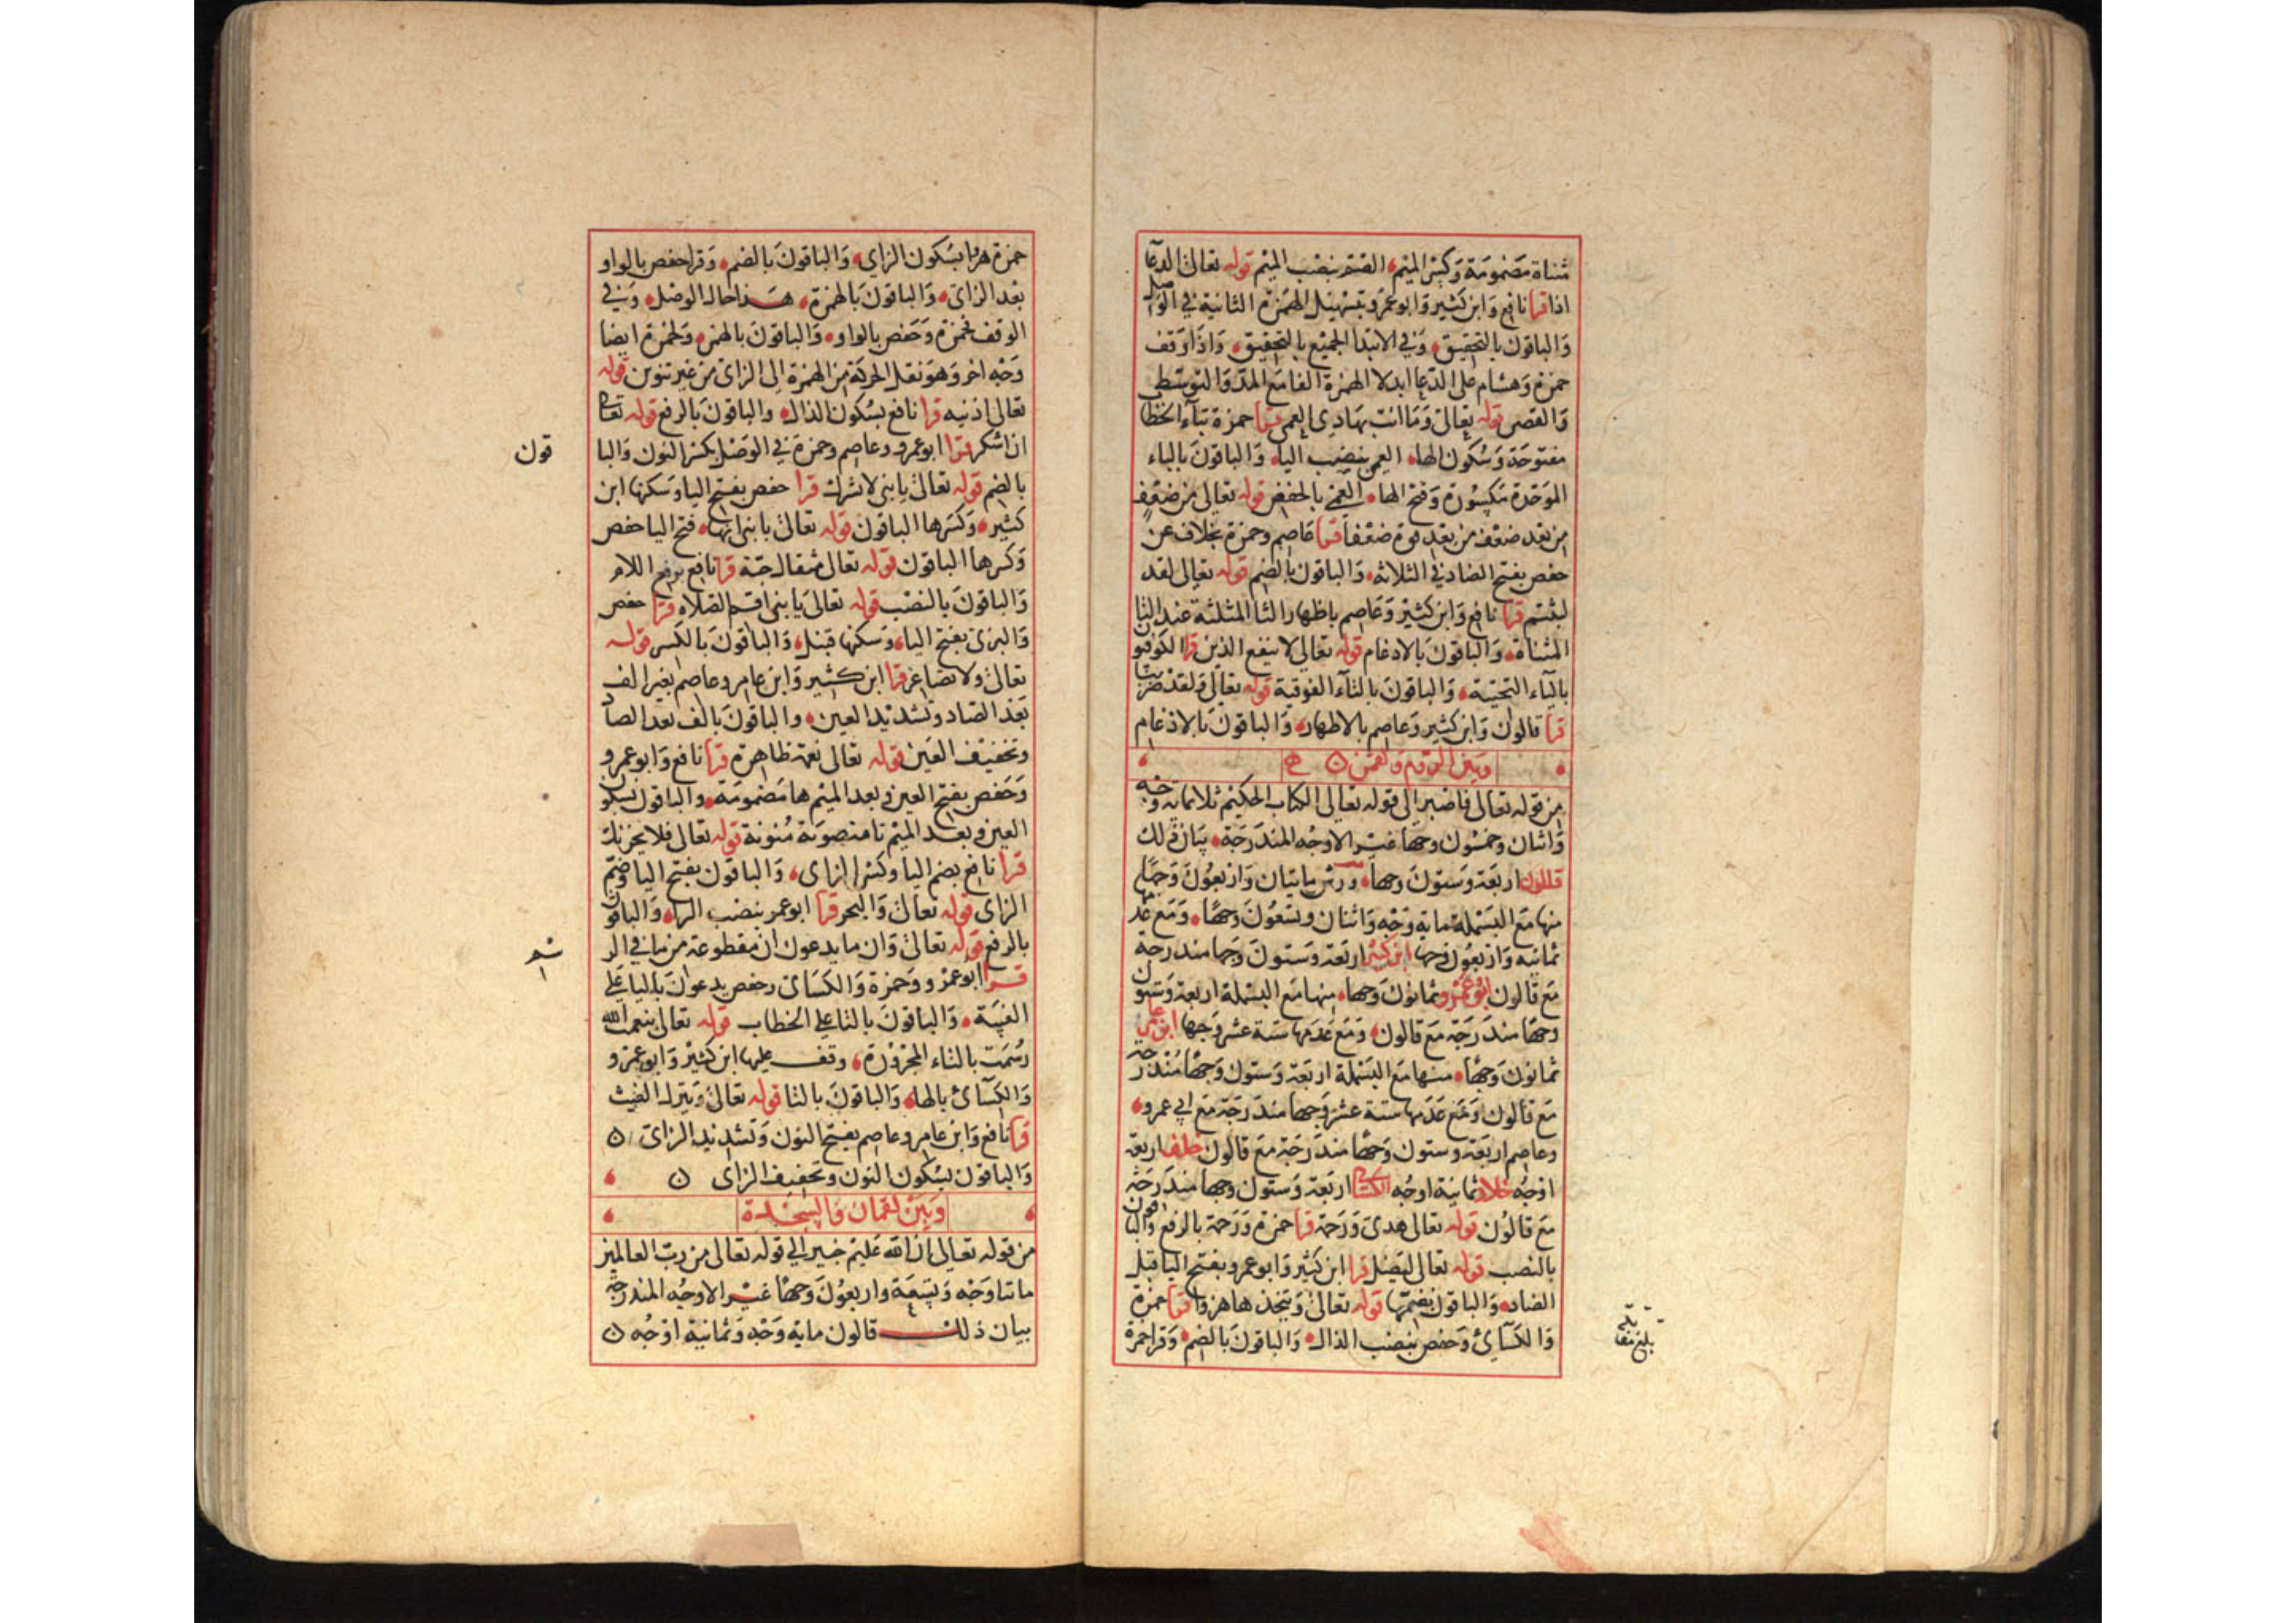 مثناة مضمومة وكسر الميم الصم بنصب الميم قوله تعالى الدعا
اذا قرا نافع وابن كثير وابو عمرو بتسهيل الهمزة الثانية في الوصل
والباقون بالتحقيق وفي الابتدا الجميع بالتحقيق واذا وقف
حمزة وهشام على الدعا ابدلا الهمزة الفا مع المد والتوسط
والقصر قوله تعالى وما انت بهادي العمي قرا حمزة بتاء الخطا
مفتوحة وسكون الها العمي بنصب اليا والباقون بالباء
الموحدة مكسورة وفتح الها العمي بالخفض قوله تعالى من ضعف
من بعد ضعف من بعد قوة ضعفا قرا عاصم وحمزة بخلاف عن
حفص بفتح الضاد في الثلاثة والباقون بالضم قوله تعالى لقد
لبثتم قرا نافع وابن كثير وعاصم باظهار الثا المثلثة عند التا
المثناة والباقون بالادغام قوله تعالى لا ينفع الذين قرا الكوفيو
بالياء التحتية والباقون بالتاء الفوقية قوله تعالى ولقد ضربنا
قرا قالون وابن كثير وعاصم بالاظهار والباقون بالادغام
وبين الروم ولقمن
من قوله تعالى فاصبر الى قوله تعالى الكتاب الحكيم ثلاثماية وجه
واثنان وخمسون وجها غير الاوجه المندرجة بيان ذلك
قالون اربعة وستون وجها ورش مايتان واربعون وجها
منها مع البسملة ماية وجه واثنان وتسعون وجها ومع عدمها
ثمانية واربعون وجها ابن كثير اربعة وستون وجها مندرجة
مع قالون ابو عمرو ثمانون وجها منها مع البسملة اربعة وستون
وجها مندرجة مع قالون ومع عدمها ستة عشر وجها ابن عامر
ثمانون وجها منها مع البسملة اربعة وستون وجها مندرجة
مع قالون ومع عدمها ستة عشر وجها مندرجة مع ابي عمرو
وعاصم اربعة وستون وجها مندرجة مع قالون خلف اربعة
اوجه خلاد ثمانية اوجه الكسائي اربعة وستون وجها مندرجة
مع قالون قوله تعالى هدى ورحمة قرا حمزة ورحمة بالرفع والباقون
بالنصب قوله تعالى ليضل قرا ابن كثير وابو عمرو بفتح اليا قبل
الضاد والباقون بضمها قوله تعالى ويتخذها هزوا قرا حمزة
والكسائي وحفص بنصب الذال والباقون بالضم وقرا حمزة
بلغ مقا
حمزة هزوا بسكون الزاي والباقون بالضم وقرا حفص بالواو
بعد الزاي والباقون بالهمزة هذا حال الوصل وفي
الوقف فحمزة وحفص بالواو والباقون بالهمز ولحمزة ايضا
وجه اخر وهو نقل الحركة من الهمزة الى الزاي من غير تنوين قوله
تعالى اذنيه قرا نافع بسكون الذال والباقون بالرفع قوله تعالى
ان اشكر قرا ابو عمرو وعاصم وحمزة في الوصل بكسر النون والبا
قون
بالضم قوله تعالى يا بني لا تشرك قرا حفص بفتح اليا وسكنها ابن
كثير وكسرها الباقون قوله تعالى يا بني انها فتح اليا حفص
وكسرها الباقون قوله تعالى مثقال حبة قرا نافع برفع اللام
والباقون بالنصب قوله تعالى يا بني اقم الصلاه قرا حفص
والبزي بفتح اليا وسكنها قنبل والباقون بالكسر قوله
تعالى ولا تصاعر قرا ابن كثير وابن عامر وعاصم بغير الف
بعد الصاد وتشديد العين والباقون بالف بعد الصاد
وتخفيف العين قوله تعالى نعمة ظاهرة قرا نافع وابو عمرو
وحفص بفتح العين وبعد الميم ها مضمومة والباقون بسكون
العين وبعد الميم تا منصوبة منونة قوله تعالى فلا يحزنك
قرا نافع بضم اليا وكسر الزاي والباقون بفتح اليا وضم
الزاي قوله تعالى والبحر قرا ابو عمرو بنصب الرا والباقون
بالرفع قوله تعالى وان ما يدعون ان مقطوعة من ما في الر
سم
قرا ابو عمرو وحمزة والكسائي وحفص يدعون باليا على
الغيبة والباقون بالتا على الخطاب قوله تعالى بنعمت الله
رسمت بالتاء المجرورة وقف عليها ابن كثير وابو عمرو
والكسائي بالها والباقون بالتا قوله تعالى وينزل الغيث
قرا نافع وابن عامر وعاصم بفتح النون وتشديد الزاي
والباقون بسكون النون وتخفيف الزاي
وبين لقمان والسجدة
من قوله تعالى ان الله عليم خبير الى قوله تعالى من رب العالمين
ماتنا وجه وتسعة واربعون وجها غير الاوجه المندرجة
بيان ذلك قالون ماية وجه وثمانية اوجه